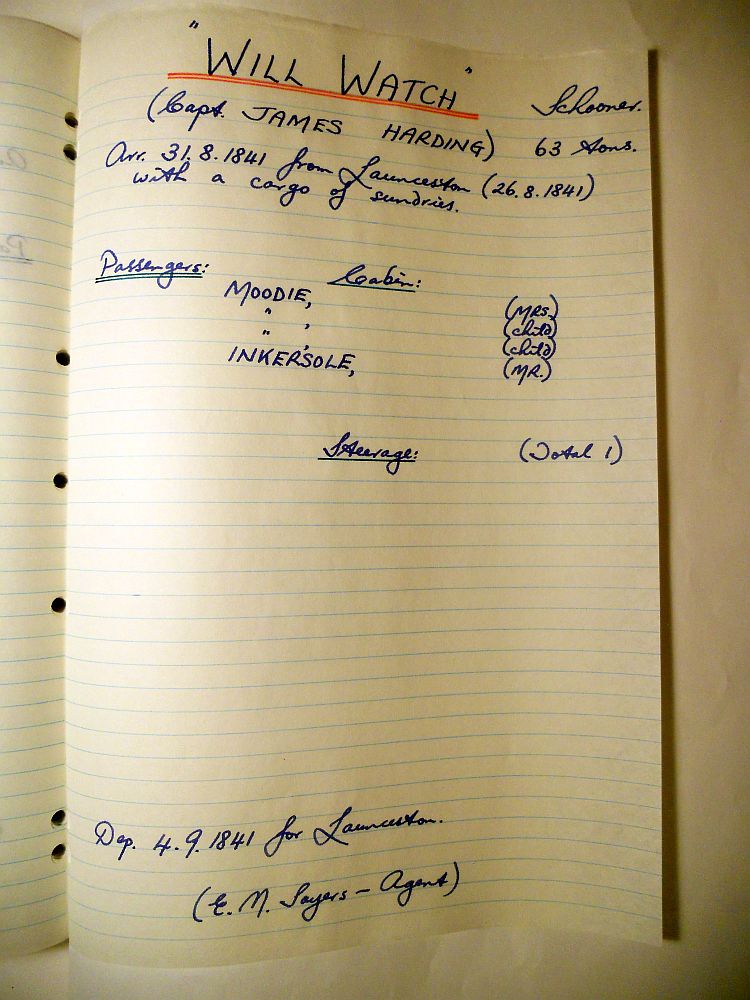 "WILL WATCH" Schooner.
(Capt. JAMES HARDING) 63 tons.
Arr. 31.8.1841 from Launceston (26.8.1841)
with a cargo of sundries.
Passengers: Cabin:
MOODIE, (MRS.)
" , (child)
" , (child)
INKERSOLE, (MR.)
Steerage: (Total 1)
Dep. 4.9.1841 for Launceston.
(E. M. Sayers - Agent)